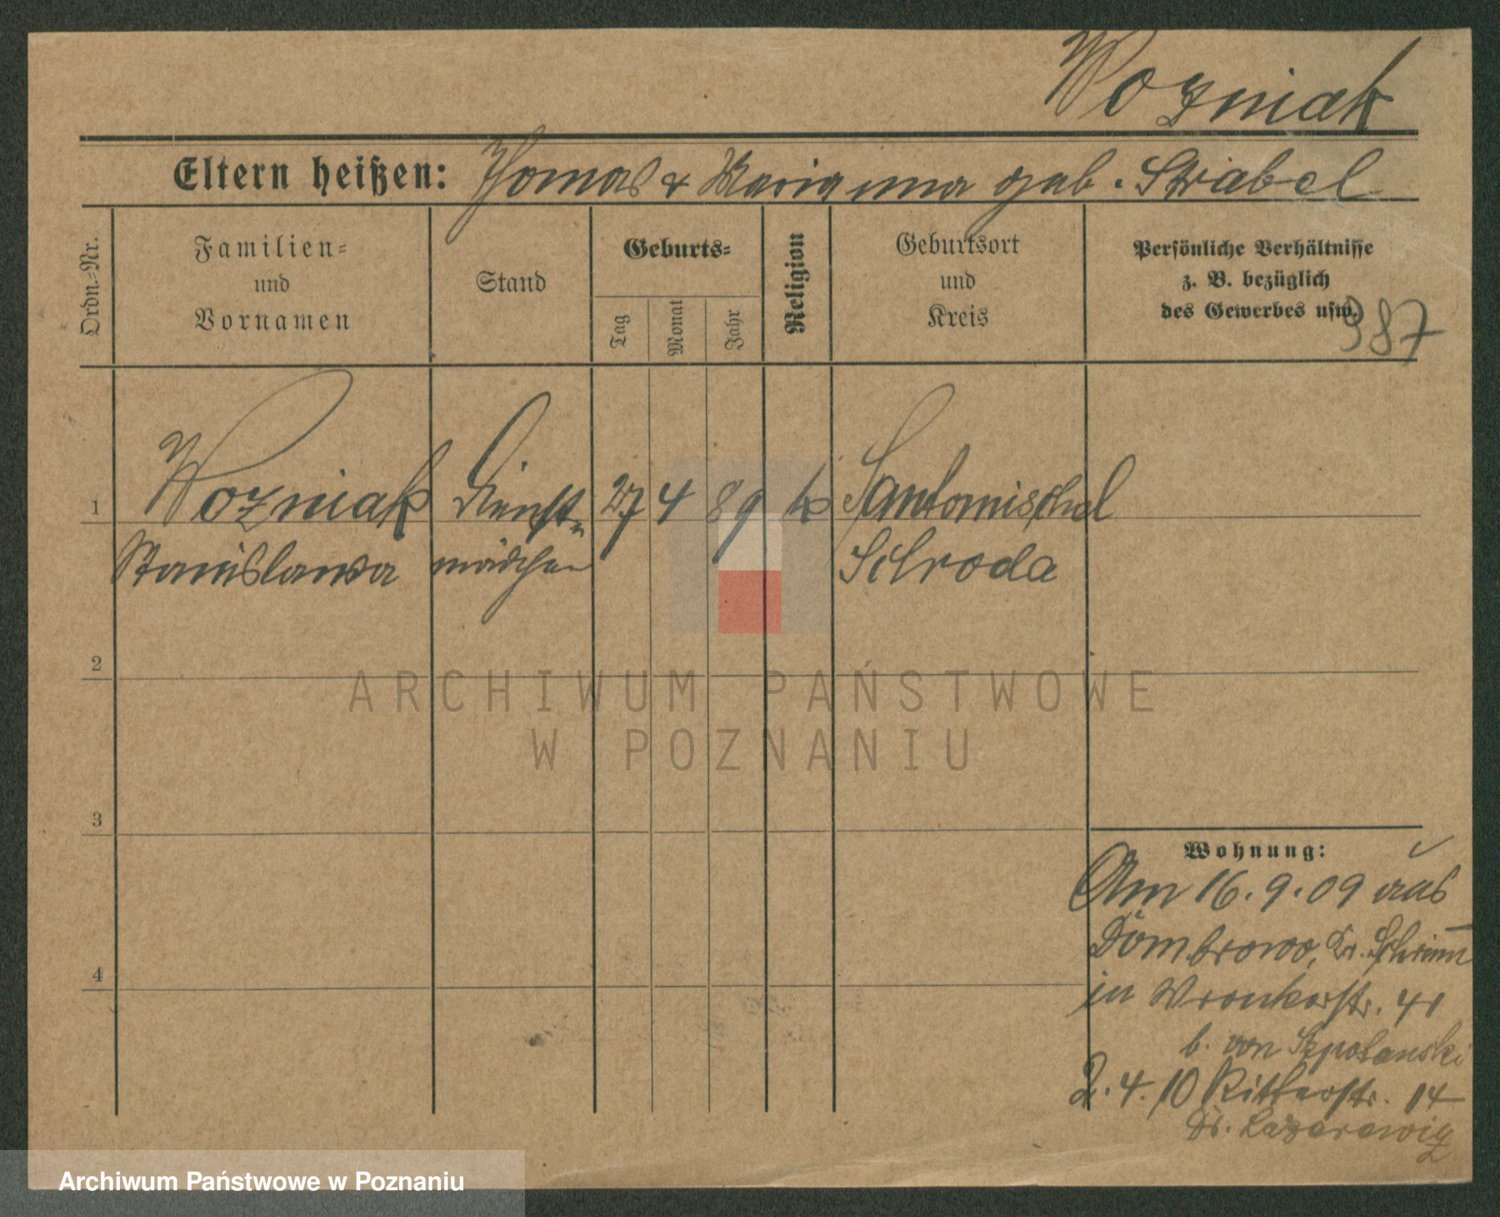 Wozniak
Eltern heißen: Thomas & Marianna geb. Strabel
Ordn.-Nr.
Familien-
und
Vornamen
Stand
Geburts-
Tag
Monat
Jahr
Religion
Geburtsort
und
Kreis
Persönliche Verhältnisse
z. B. bezüglich
des Gewerbes usw.)
987
1 Wozniak Dienst- 27 4 89 k Santomischel
Stanislawa mädchen Schroda
2
3
4
Wohnung:
Am 16.9.09 aus
Dombrowo, Kr. Schrimm
in Wronkerstr. 41
b. von
2.4.10 Ritterstr. 14
Dr.
ARCHIWUM PAŃSTWOWE
W POZNANIU
Archiwum Państwowe w Poznaniu